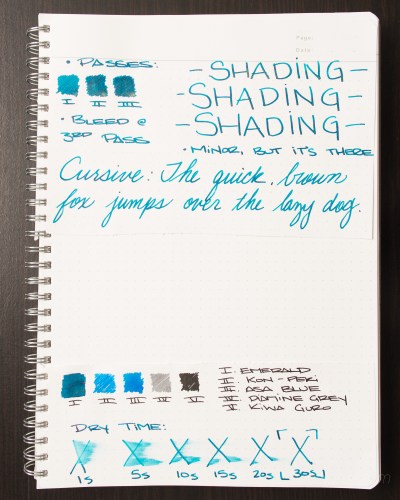 Page:
Date:
• PASSES:
I II III
• BLEED @
3RD PASS
- SHADING -
- SHADING -
- SHADING -
• MINOR, BUT IT'S THERE
Cursive: The quick, brown
fox jumps over the lazy dog.
I II III IV V
I. EMERALD
II. KON-PEKI
III. ASA BLUE
IV. DIAMINE GREY
V. KIWA GURO
DRY TIME:
X X X X X X
1s 5s 10s 15s 20s 30s